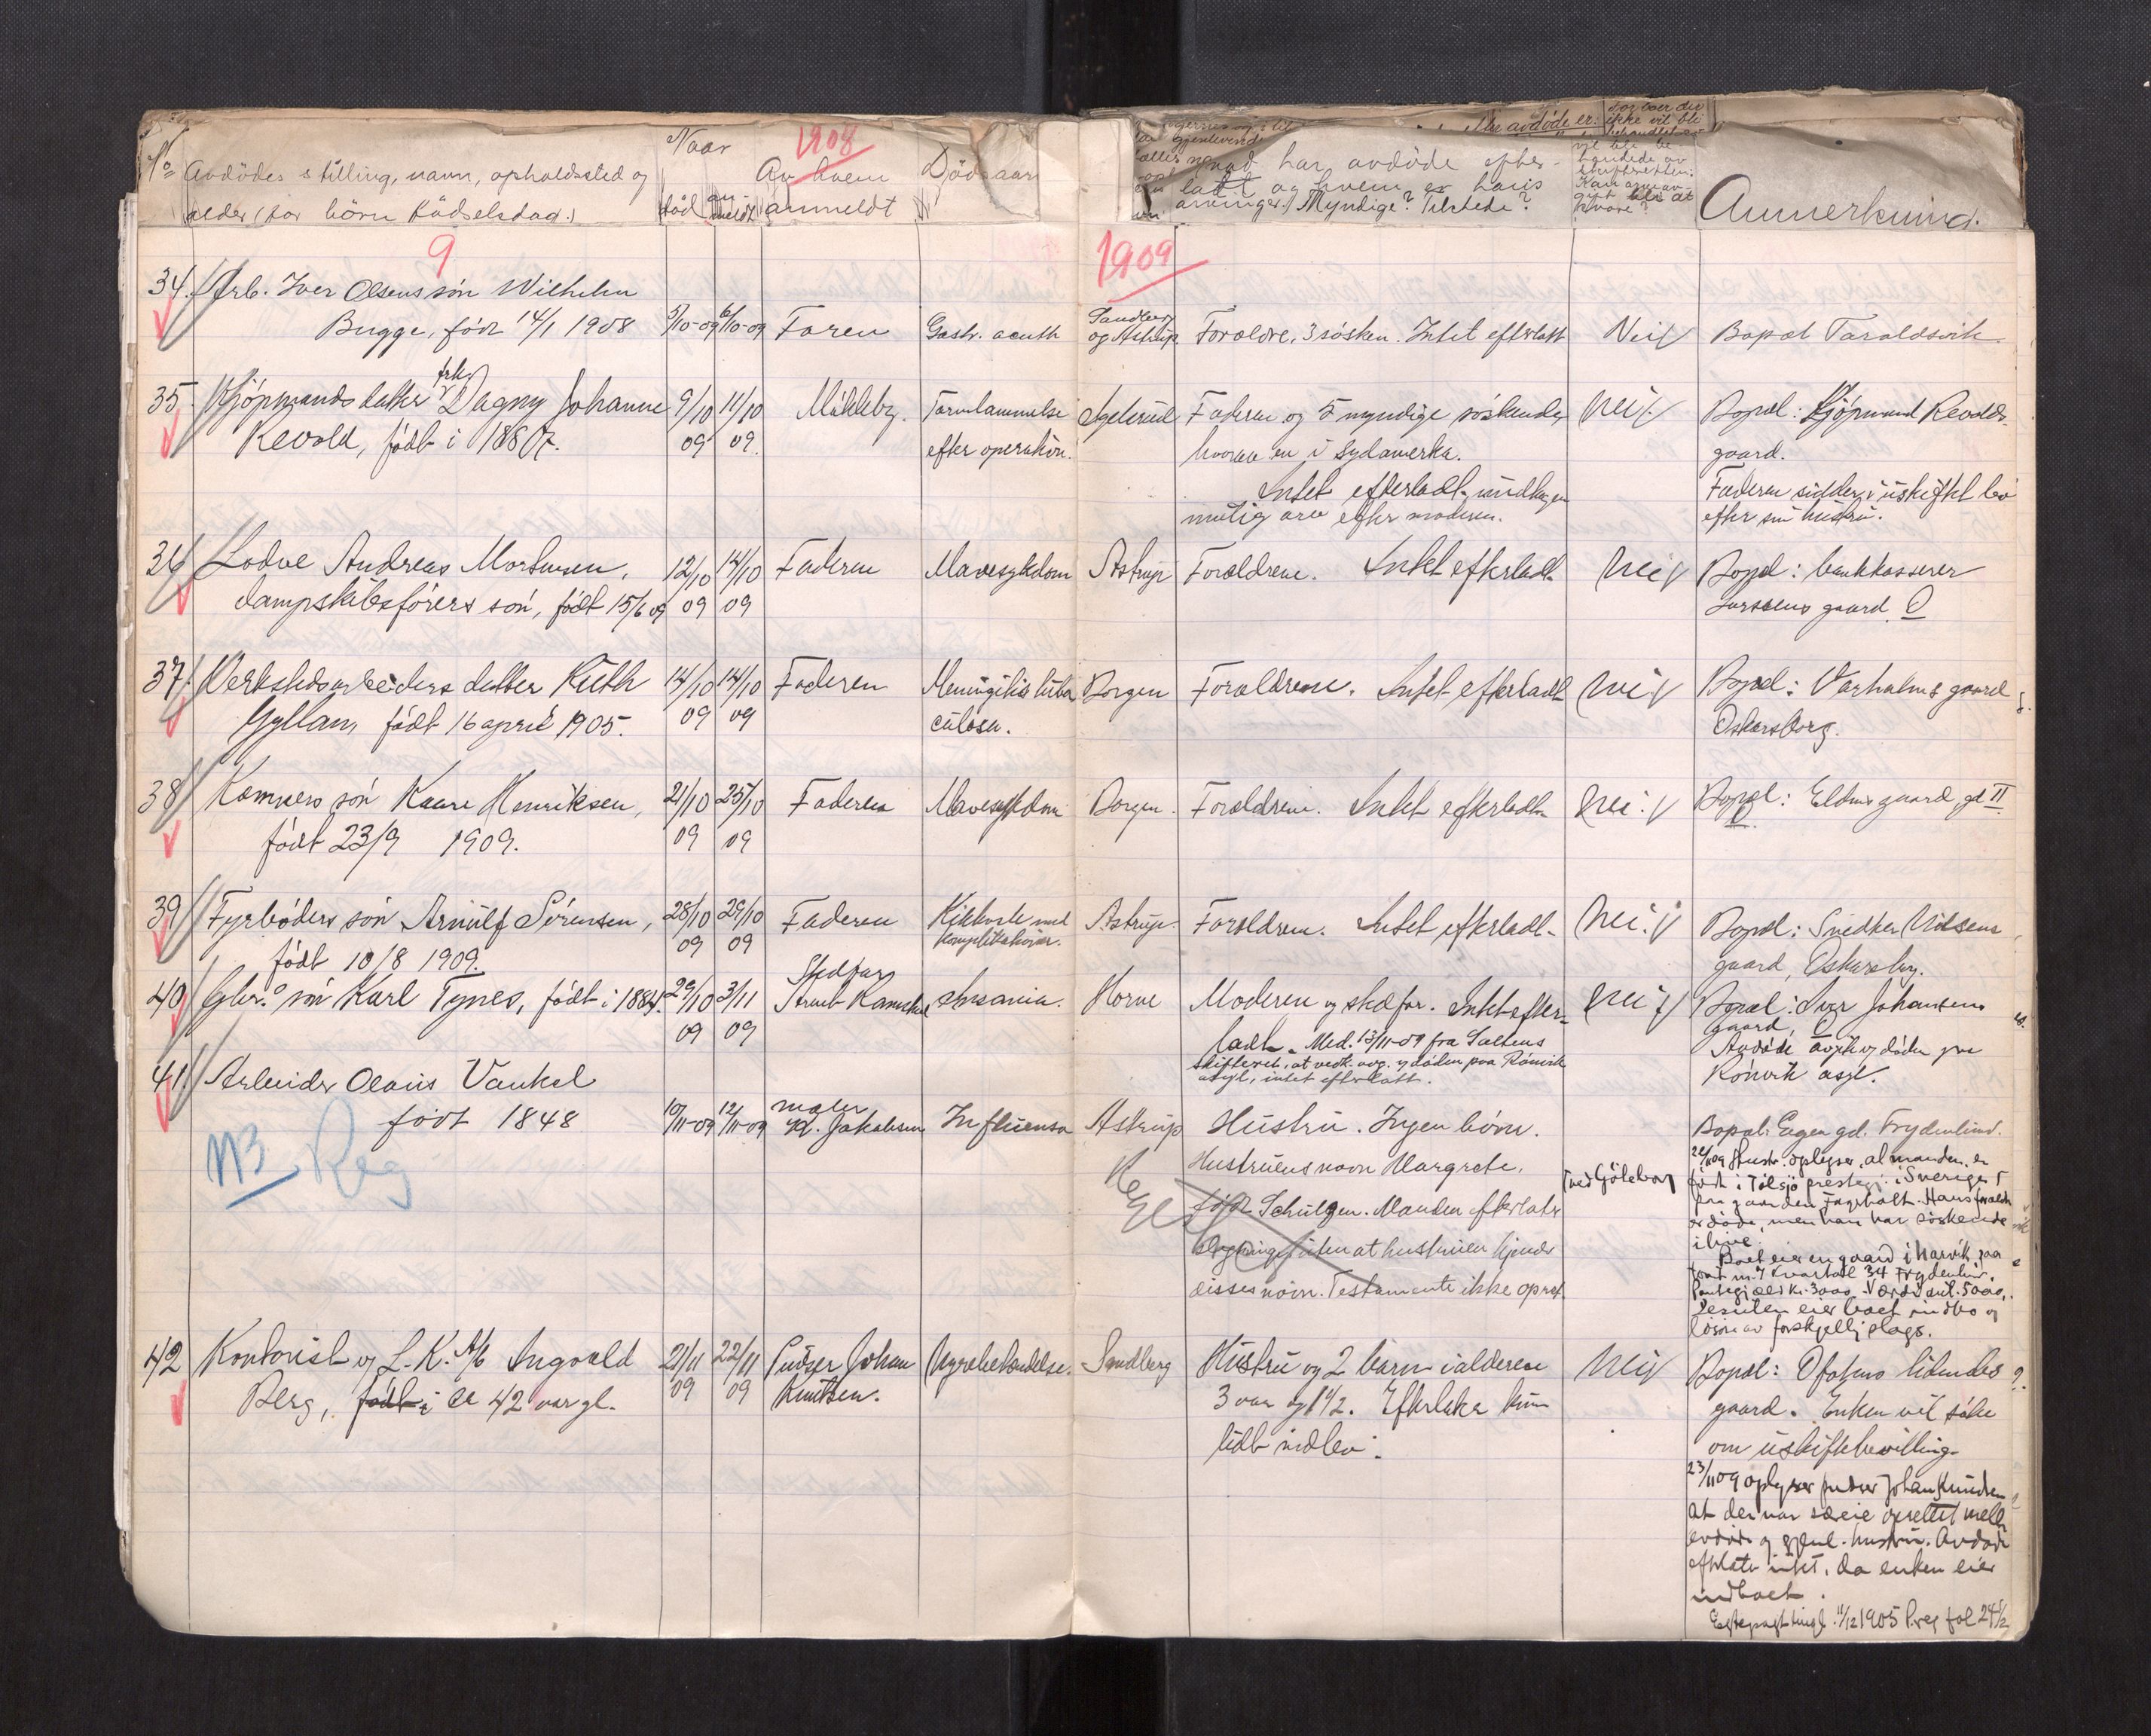 No Avdødes stilling, navn, opholdssted og
alder (for børn Fødselsdag.)
Naar
død
an
meldt
1908
Av hvem
anmeldt
Dødsaar
hvad har avdøde efter-
ladt og hvem er hans
arvinger. Myndige? Tilstede?
Anmerkning.
9
1909
34. Arb. Iver Olsens søn Wilhelm
Bugge, født 14/1 1908
5/10-09 6/10-09 Faren Gastr. acuth Sandberg
og Astrup Forældre, 3 søsken. Intet efterlatt Nei Bopæl Taraldsvik
35. Kjøpmands datter frk. Dagny Johanne
Revold, født i 1887.
9/10
09
11/10
09.
Mühleby. Tarmlammelse
efter operation.
Agelerud Faderen og 5 myndige søskende,
hvorav en i Sydamerka.
Intet efterladt, undtagen
mulig arv efter moderen.
Nei. Bopæl: Kjøpmand Revolds
gaard.
Faderen sidder i uskiftet bo
efter sin hustru.
36 Lodve Andreas Mortensen,
dampskibsførers søn, født 15/6 09
12/10
09
14/10
09
Faderen Mavesykdom Astrup Forældrene. Intet efterladt. Nei Bopæl: bankkasserer
Larssens gaard.
37. Verkstedsarbeiders datter Ruth
Gyllam, født 16 april 1905.
14/10
09
14/10
09
Faderen Meningitis tuber
culosa.
Borgen Forældrene. Intet efterladt Nei Bopæl: Varholms gaard
Oskarsborg.
38 Kamners søn Kaare Henriksen,
født 23/9 1909.
21/10
09
25/10
09
Faderen Mavesykdom Borgen. Forældrene. Intet efterladt. Nei. Bopæl: Eldens gaard, gd II
39 Fyrbøders søn Arnulf Sørensen,
født 10/8 1909.
28/10
09
29/10
09
Faderen Kikhoste med
komplikationer.
Astrup. Forældrene. Intet efterladt. Nei. Bopæl: Snedker Nilsens
gaard, Oskarsbg.
40 Gbr. søn Karl Tynes, født i 1884.
29/10
09
3/11
09
Stedfar
Insania. Horne Moderen og stedfar. Intet efter-
ladt. Med. 13/11-09 fra Saltens
skifteret, at vedk. avg. ved døden paa Rønvik
asyl, intet efterlatt.
Nei Bopæl: Iver Johansens
gaard,
Avdøde avgik ved døden paa
Rønvik asyl.
41. Arbeider Olaus Vankel
født 1848
NB Reg
10/11-09 12/11-09 maler
Kr. Jakobsen Influensa Astrup Hustru. Ingen børn.
Hustruens navn Margrete,
født Schulzen. Manden efterlater
slegninger uten at hustruen kjender
disses navn. Testamente ikke opret.
ved Gøteborg
Bopæl. Egen gd. Frydenlund.
22/11 09 Hustr. oplyser, at manden er
født i Tølsjø prestegj. i Sverige
paa gaarden Fagerhalt. Hans forældre
er døde, men han har søskende
i live.
Boet eier en gaard i Narvik paa
tomt nr. 7 kvartal 34 Frydenlund.
Pantegjæld kr. 3000. Værdi ant. 5000,
Desuten eier boet indbo og
løsøre av forskjellig slags.
42 Kontorist ved L.K. A/B Ingvald
Berg, født i ca 42 aar gl.
21/11
09
22/11
09
Pudser Johan
Knudsen.
Nyrebetændelse. Sandberg Hustru og 2 barn i alderen
3 aar og 1 1/2. Efterlater kun
lidt indbo.
Nei Bopæl: Ofotens tidendes
gaard. Enken vil søke
om uskiftebevilling.
23/11 09 oplyser pudser Johan Knudsen
at der var særeie oprettet mell.
avdøde og gjenl. hustru. Avdøde
efterlater intet, da enken eier
indboet.
Egtepagt tingl. 11/12 1905 P.reg fol 245/2